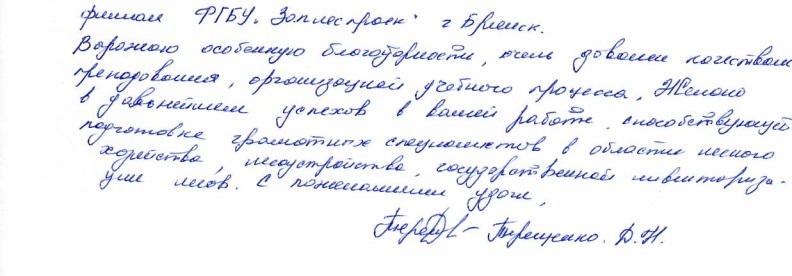 филиал ФГБУ "Заплеспроект" г Брянск.
Выражаю особенную благодарность, очень доволен качеством
преподования, организацией учебного процесса, Желаю
в дальнейшем успехов в вашей работе, способствующей
подготовке грамотных специалистов в области лесного
хозяйства, лесоустройства, государственной инвентариза-
ции лесов. С пожеланиями удачи,
Терещенко. Д.Н.